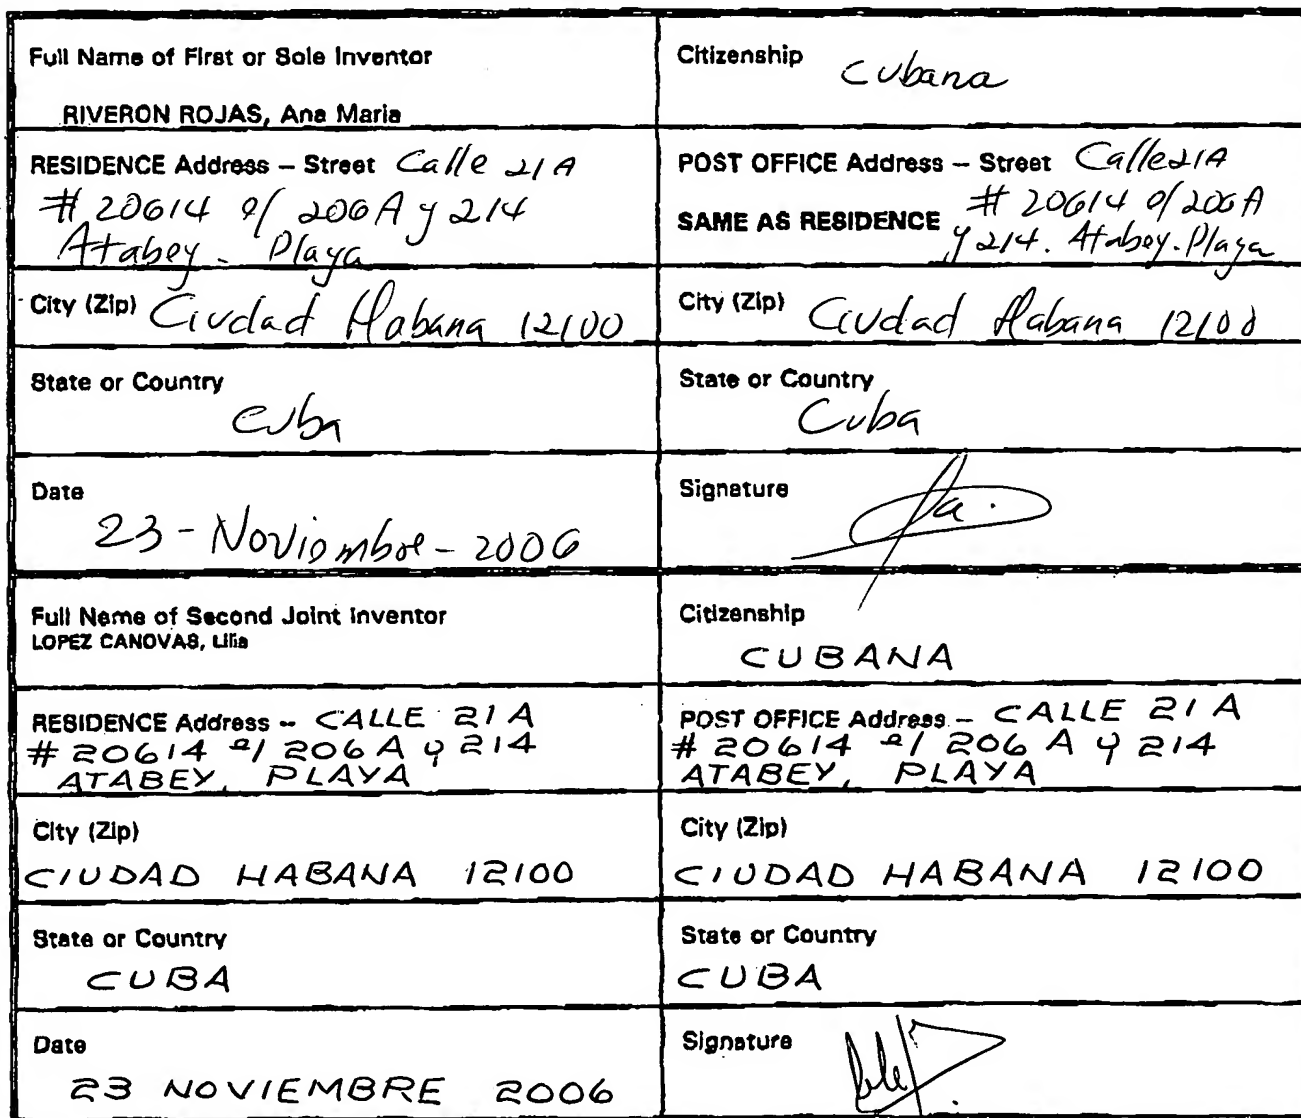 Full Name of First or Sole Inventor
RIVERON ROJAS, Ana Maria
Citizenship Cubana
RESIDENCE Address – Street Calle 21A
# 20614 e/ 206A y 214
Atabey - Playa
POST OFFICE Address – Street Calle 21A
# 20614 e/ 206A
SAME AS RESIDENCE
y 214. Atabey. Playa
City (Zip) Ciudad Habana 12100
City (Zip) Ciudad Habana 12100
State or Country
Cuba
State or Country
Cuba
Date
23 - Noviembre - 2006
Signature
Full Name of Second Joint Inventor
LOPEZ CANOVAS, Lilia
Citizenship
CUBANA
RESIDENCE Address – CALLE 21 A
# 20614 e/ 206 A y 214
ATABEY, PLAYA
POST OFFICE Address – CALLE 21 A
# 20614 e/ 206 A y 214
ATABEY, PLAYA
City (Zip)
CIUDAD HABANA 12100
City (Zip)
CIUDAD HABANA 12100
State or Country
CUBA
State or Country
CUBA
Date
23 NOVIEMBRE 2006
Signature